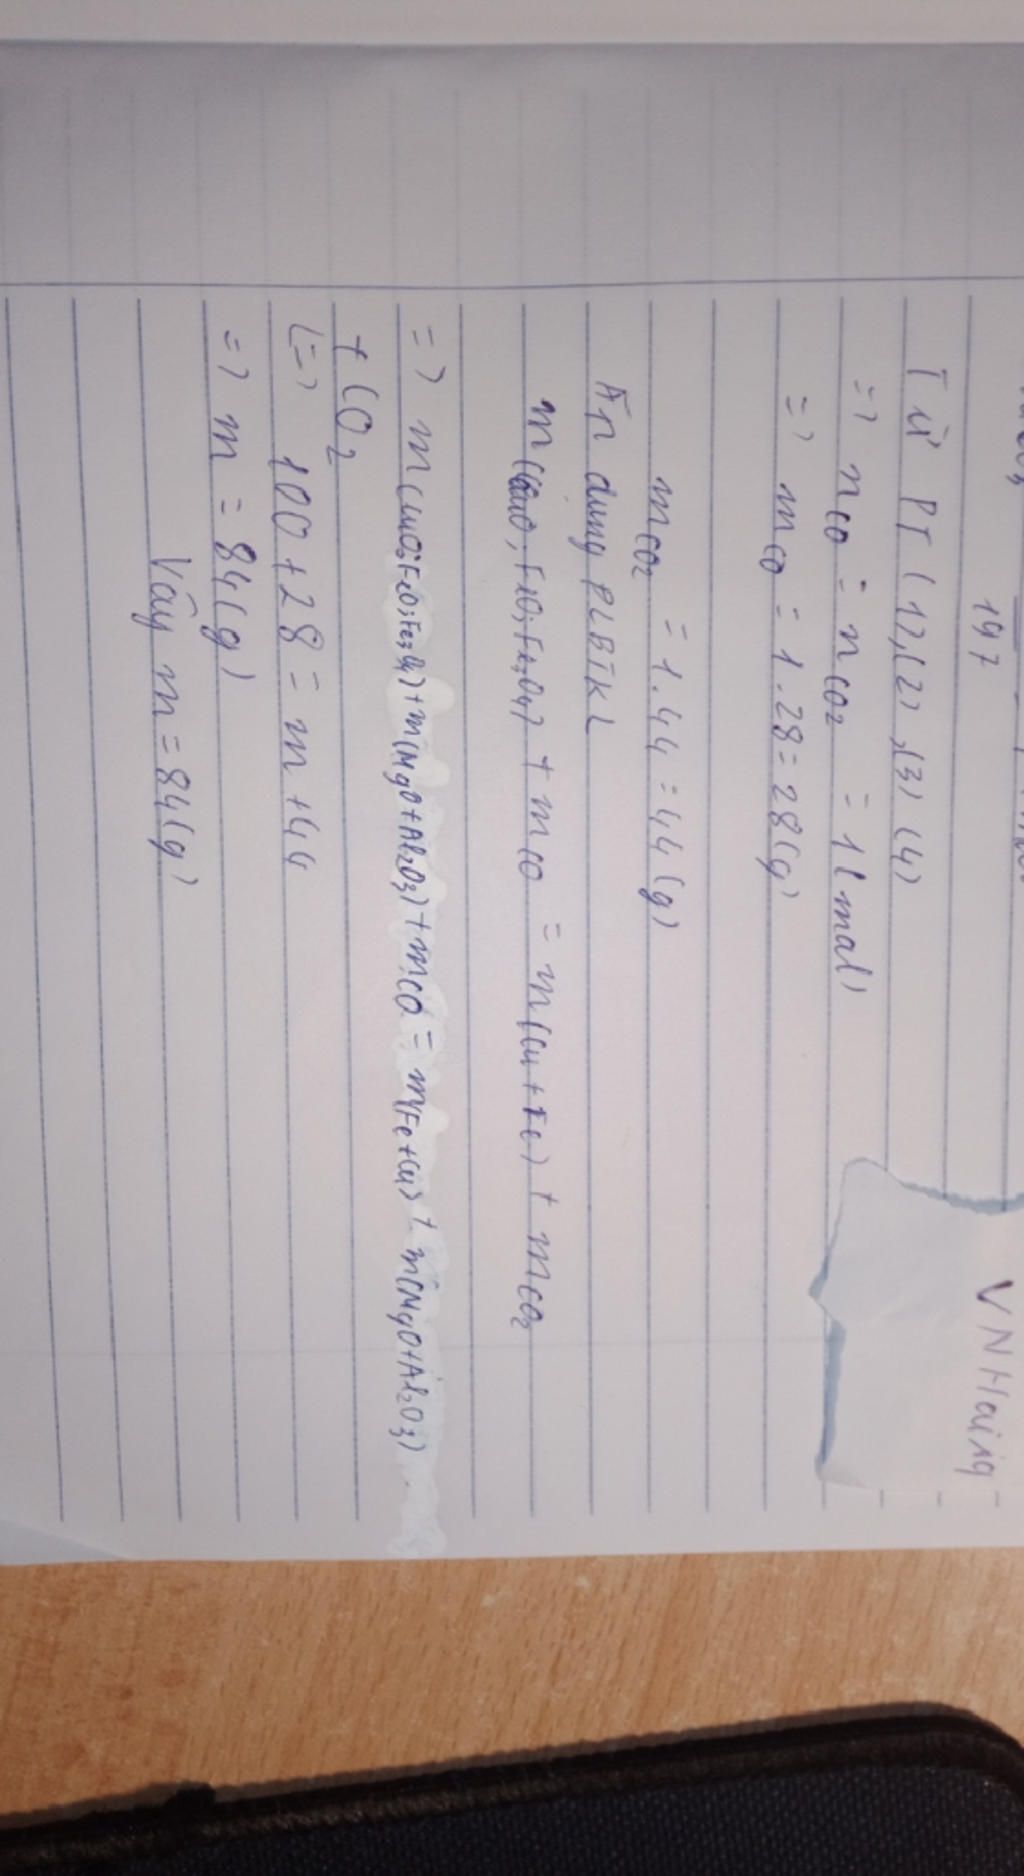 197
VNHaiaq
Từ PT (1),(2),(3)(4)
=> nCO = nCO2 = 1(mol)
=> mCO = 1.28 = 28(g)
mCO2 = 1.44 = 44(g)
Án dụng PLBTKL
m(CuO; FeO; Fe3O4) + mCO = m(Cu + Fe) + mCO2
=> m(CuO; FeO; Fe3O4) + m(MgO+Al2O3) + mCO = m(Fe+Cu) + m(MgO+Al2O3)
+ CO2
(=> 100 + 28 = m + 44
=> m = 84(g)
Vậy m = 84(g)